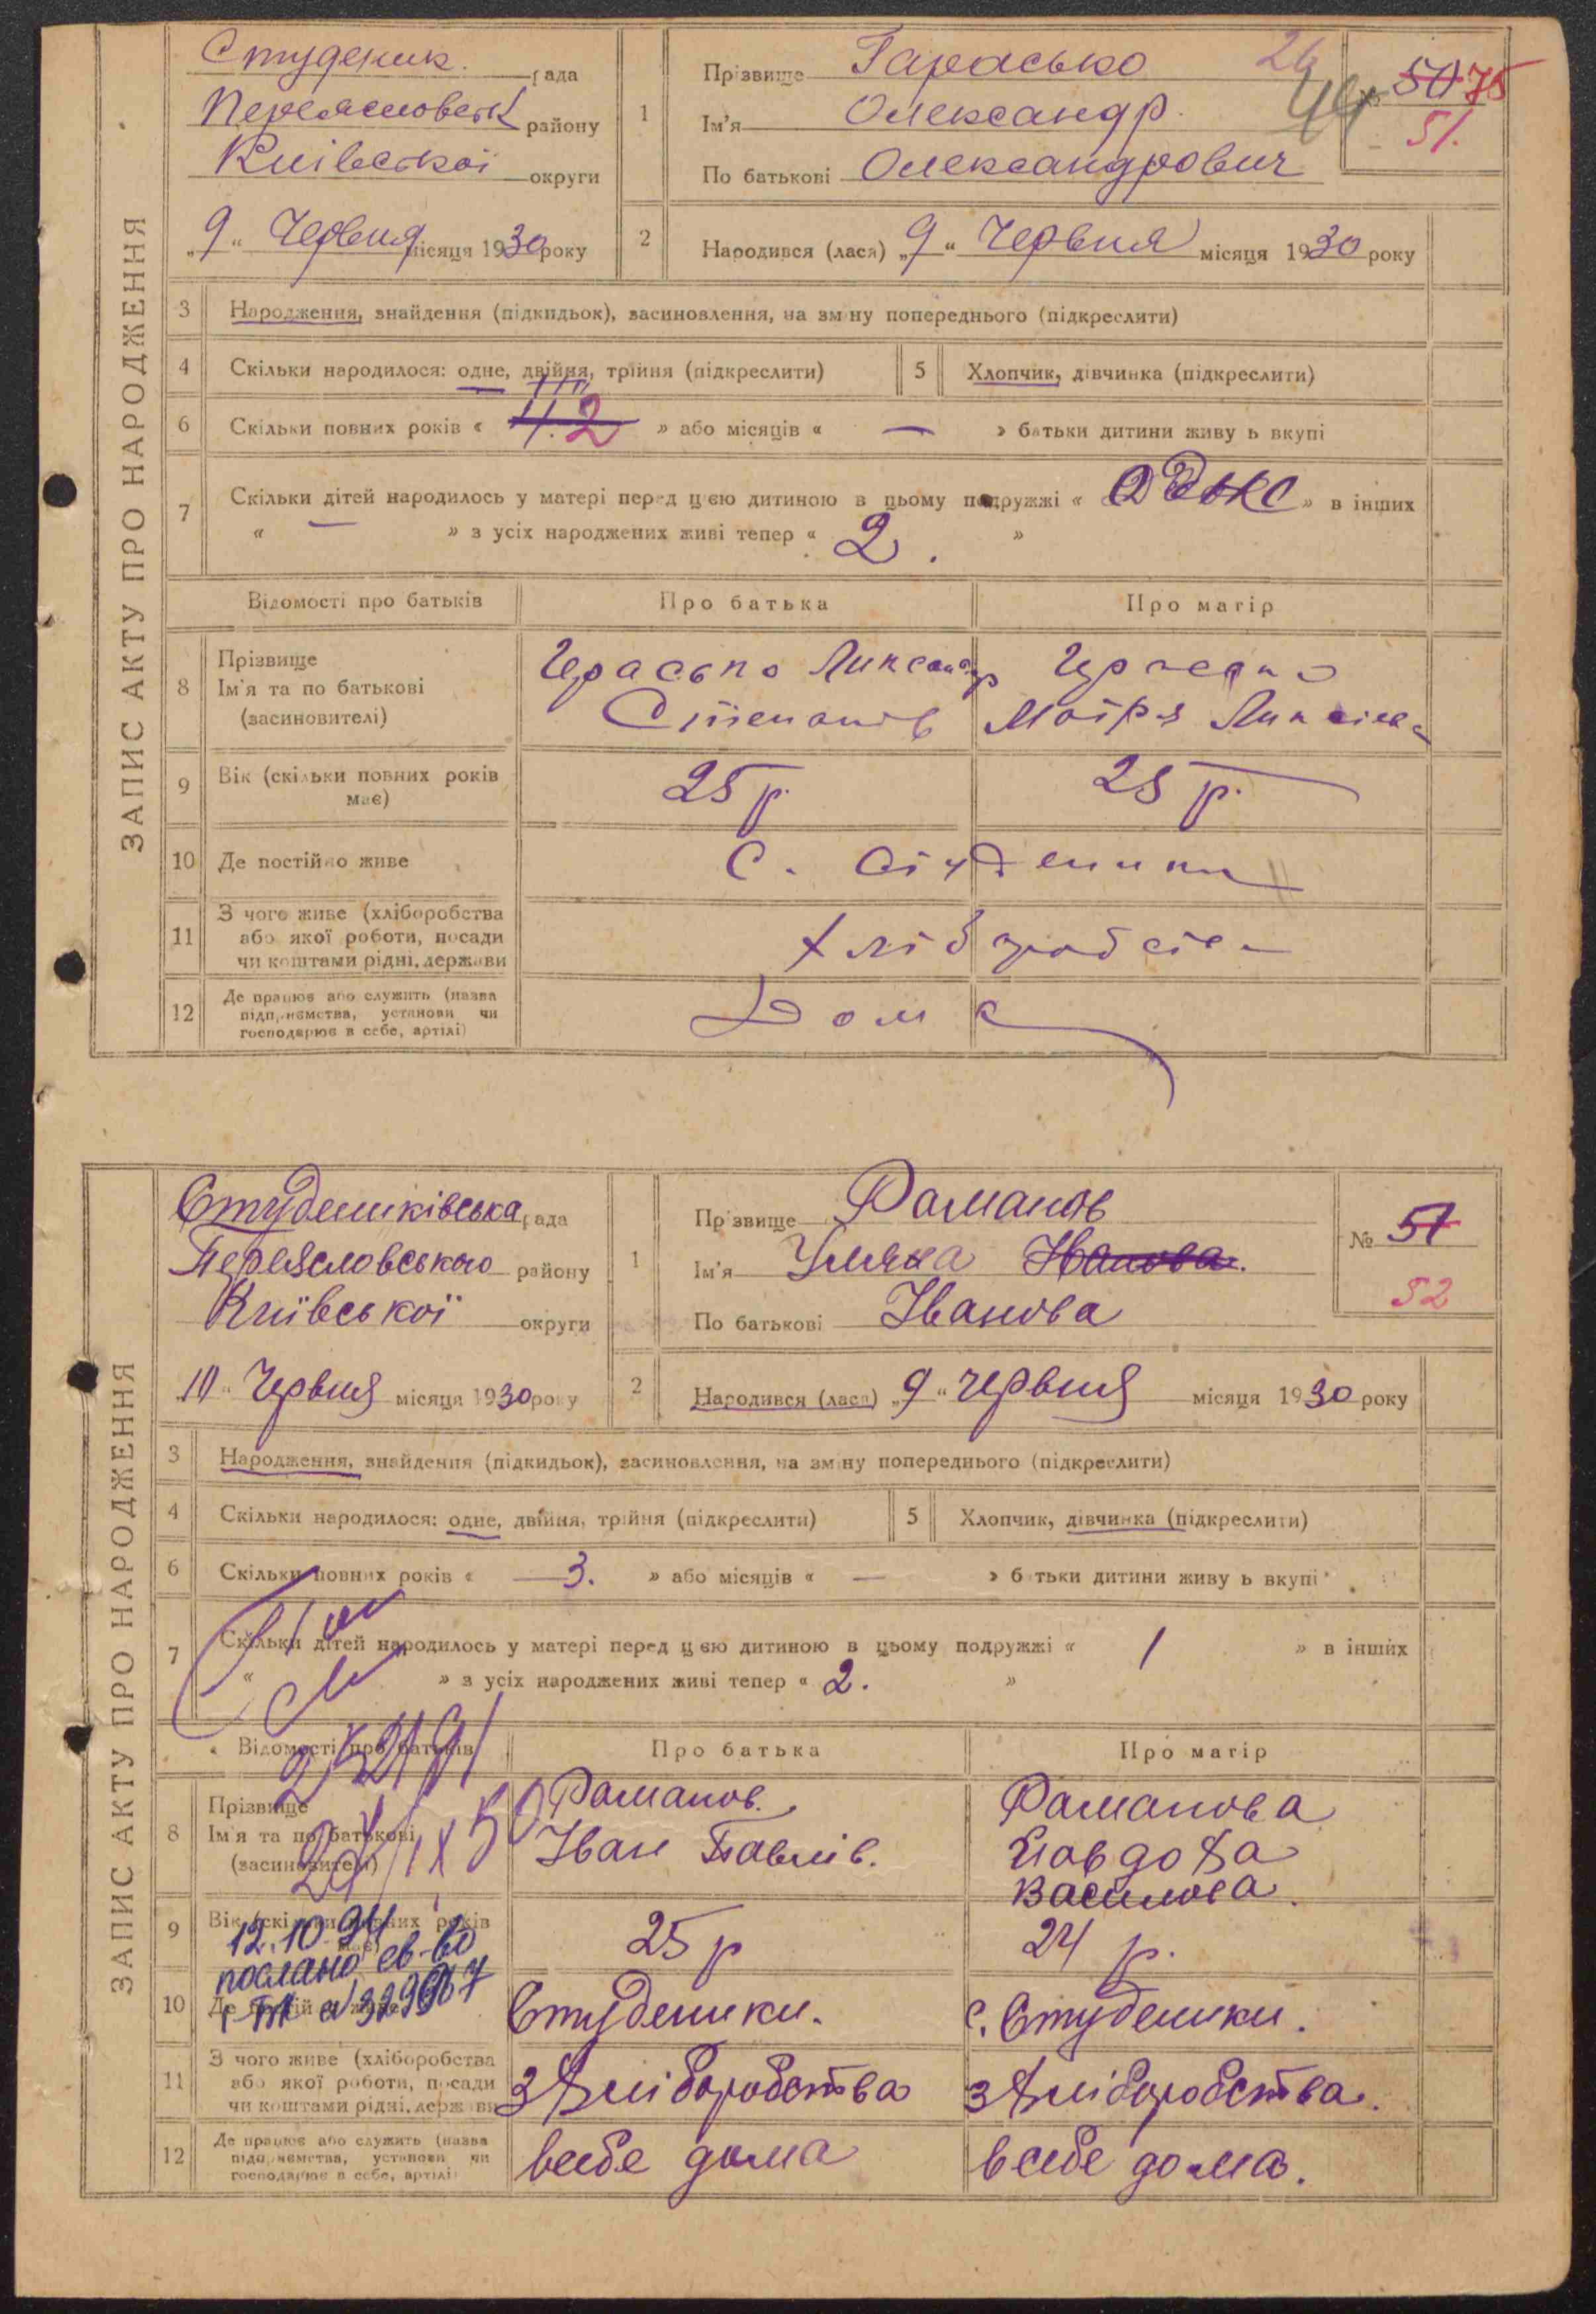 ЗАПИС АКТУ ПРО НАРОДЖЕННЯ
Студеник. рада
району
Київської округи
„9“ Червня місяця 1930 року
1
Прізвище Гарасько
Ім'я Олександр.
По батькові Олександрович
26
44
№ 50 75
51.
2
Народився (лася) „9“ Червня місяця 1930 року
3 Народження, знайдення (підкидьок), засиновлення, на зміну попереднього (підкреслити)
4 Скільки народилося: одне, двійня, трійня (підкреслити)
5 Хлопчик, дівчинка (підкреслити)
6 Скільки повних років « 2 » або місяців « — » батьки дитини живуть вкупі
7 Скільки дітей народилось у матері перед цією дитиною в цьому подружжі « » в інших
« — » з усіх народжених живі тепер « 2. »
Відомості про батьків Про батька Про матір
8 Прізвище
Ім'я та по батькові
(засиновителі)
9 Вік (скільки повних років має) 25 р. 25 р.
10 Де постійно живе С. Студеники
11 З чого живе (хліборобства
або якої роботи, посади
чи коштами рідні, держави
12 Де працює або служить (назва
підприємства, установи чи
господарює в себе, артілі)
Дома
ЗАПИС АКТУ ПРО НАРОДЖЕННЯ
Студениківська рада
Переясловського району
Київської округи
„10“ Червня місяця 1930 року
1
Прізвище Романов
Ім'я Уляна Іванова.
По батькові Іванова
№ 51
52
2
Народився (лася) „9“ червня місяця 1930 року
3 Народження, знайдення (підкидьок), засиновлення, на зміну попереднього (підкреслити)
4 Скільки народилося: одне, двійня, трійня (підкреслити)
5 Хлопчик, дівчинка (підкреслити)
6 Скільки повних років « 3. » або місяців « — » батьки дитини живуть вкупі
7 Скільки дітей народилось у матері перед цією дитиною в цьому подружжі « 1 » в інших
« » з усіх народжених живі тепер « 2. »
Відомості про батьків Про батька Про матір
8 Прізвище
Ім'я та по батькові
(засиновителі)
Романов.
Іван Павлів.
Романова
Явдоха
Василова.
9 Вік (скільки повних років має) 25 р 24 р.
12.10.94
послано св-во
10 Де постійно живе Студеники. с. Студеники.
11 З чого живе (хліборобства
або якої роботи, посади
чи коштами рідні, держави
з хліборобства з хліборобства.
12 Де працює або служить (назва
підприємства, установи чи
господарює в себе, артілі)
в себе дома в себе дома.